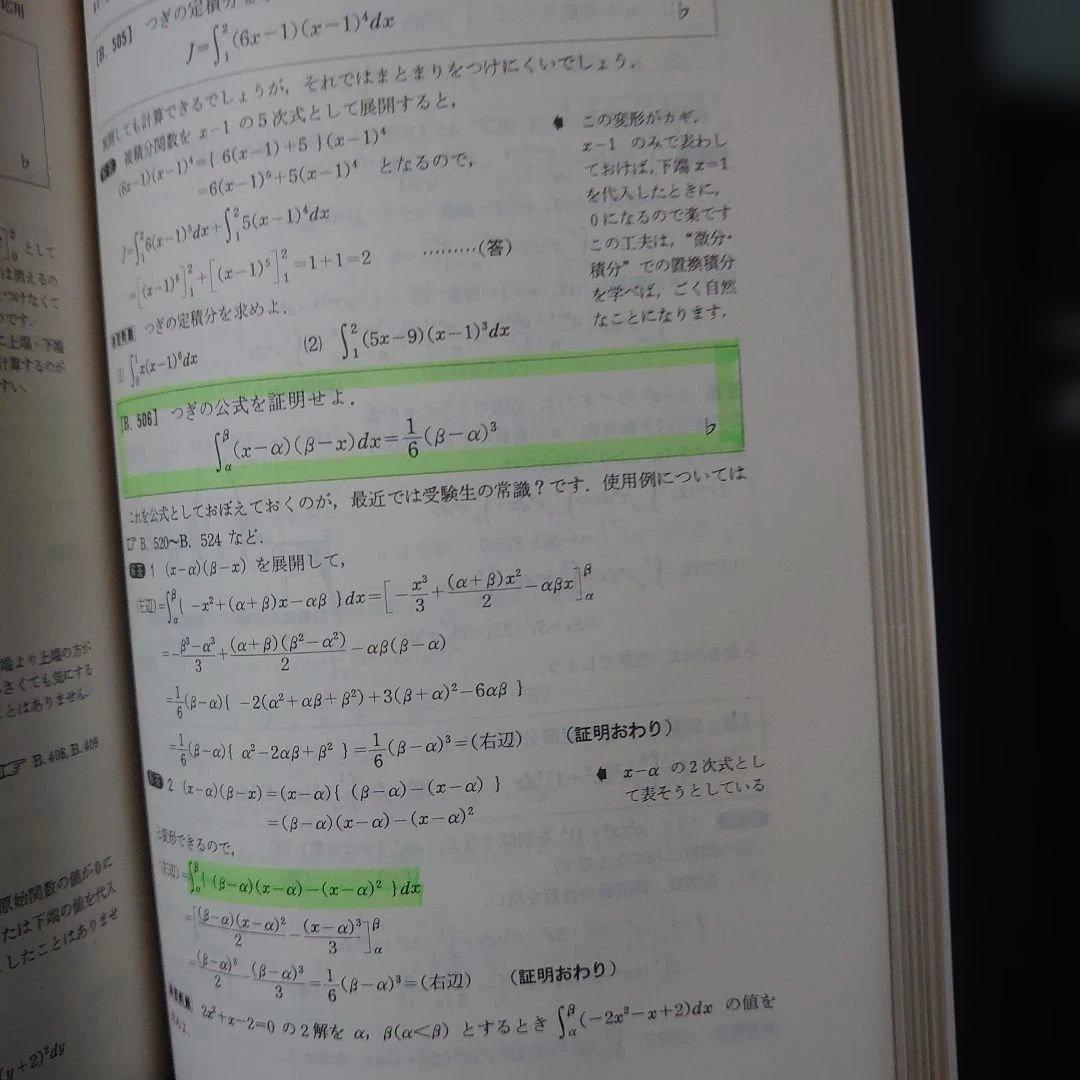 応用
[B. 505] つぎの定積分
J=∫₁²(6x−1)(x−1)⁴dx
♭
しても計算できるでしょうが，それではまとまりをつけにくいでしょう．
被積分関数を x−1 の5次式として展開すると，
(6x−1)(x−1)⁴={ 6(x−1)+5 }(x−1)⁴
=6(x−1)⁵+5(x−1)⁴ となるので，
J=∫₁²6(x−1)⁵dx+∫₁²5(x−1)⁴dx
=[(x−1)⁶]₁²+[(x−1)⁵]₁²=1+1=2 ………(答)
この変形がカギ．
x−1 のみで表わし
ておけば，下端 x=1
を代入したときに，
0になるので楽です
この工夫は，“微分・
積分”での置換積分
を学べば，ごく自然
なことになります．
つぎの定積分を求めよ．
∫₀¹x(x−1)⁶dx (2) ∫₁²(5x−9)(x−1)³dx
[B. 506] つぎの公式を証明せよ．
∫_α^β(x−α)(β−x)dx=1/6(β−α)³
♭
これを公式としておぼえておくのが，最近では受験生の常識？です．使用例については
☞ B. 520〜B. 524 など．
1 (x−α)(β−x) を展開して，
(左辺)=∫_α^β{ −x²+(α+β)x−αβ }dx=[−x³/3+(α+β)x²/2−αβx]_α^β
=−(β³−α³)/3+(α+β)(β²−α²)/2−αβ(β−α)
=1/6(β−α){ −2(α²+αβ+β²)+3(β+α)²−6αβ }
=1/6(β−α){ α²−2αβ+β² }=1/6(β−α)³=(右辺) (証明おわり)
2 (x−α)(β−x)=(x−α){ (β−α)−(x−α) }
=(β−α)(x−α)−(x−α)²
x−α の2次式とし
て表そうとしている
と変形できるので，
(左辺)=∫_α^β{ (β−α)(x−α)−(x−α)² }dx
=[(β−α)(x−α)²/2−(x−α)³/3]_α^β
=(β−α)³/2−(β−α)³/3=1/6(β−α)³=(右辺) (証明おわり)
2x²+x−2=0 の2解を α, β(α<β) とするとき ∫_α^β(−2x²−x+2)dx の値を
♭
として
は消えるの
つけなくて
です．
上端・下端
計算するのが
すい．
端より上端の方が
さくても気にする
とはありません．
☞ B. 408, B. 409
原始関数の値が0に
たは下端の値を代入
したことはありませ
(y+2)²dy